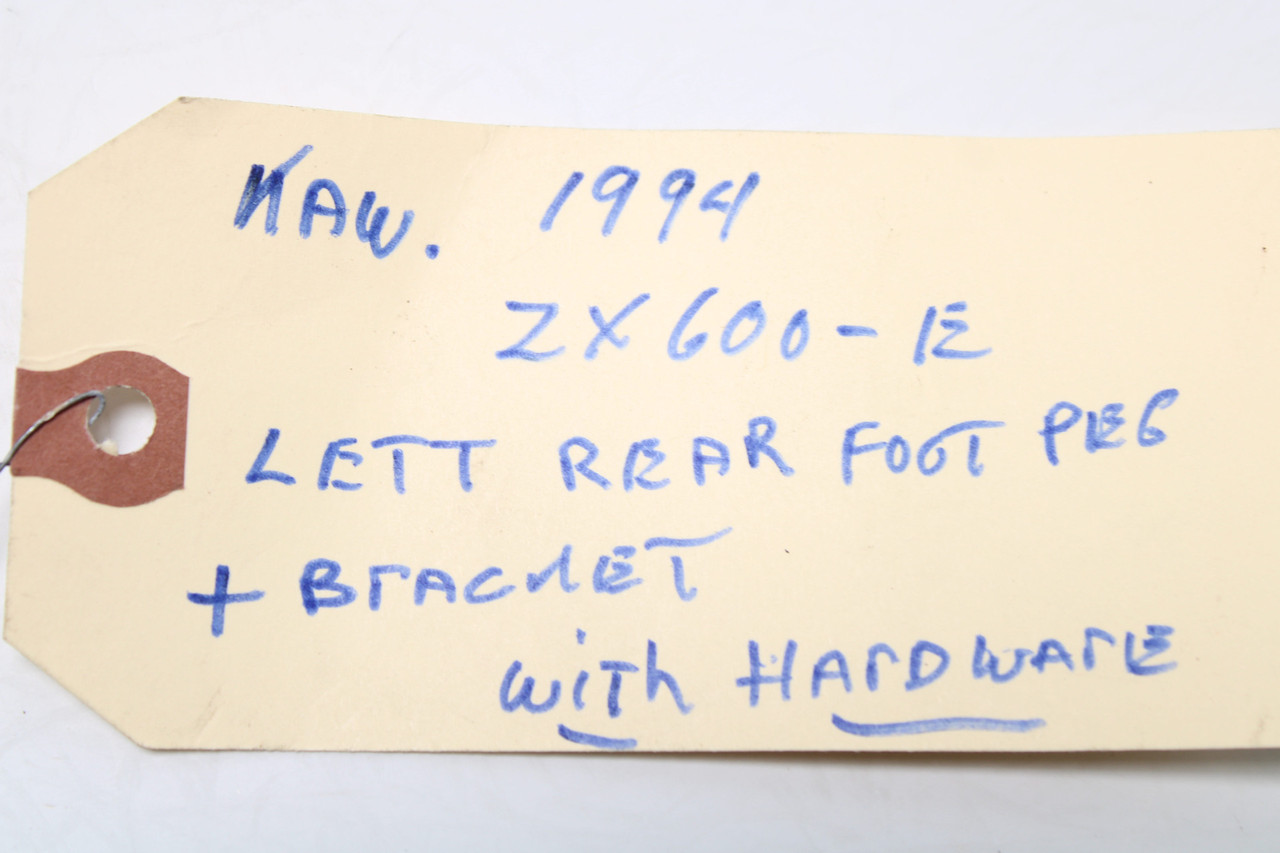 KAW. 1994
ZX600-E
LETT REAR FOOT PEG
+ BrACKET
with HArDWArE